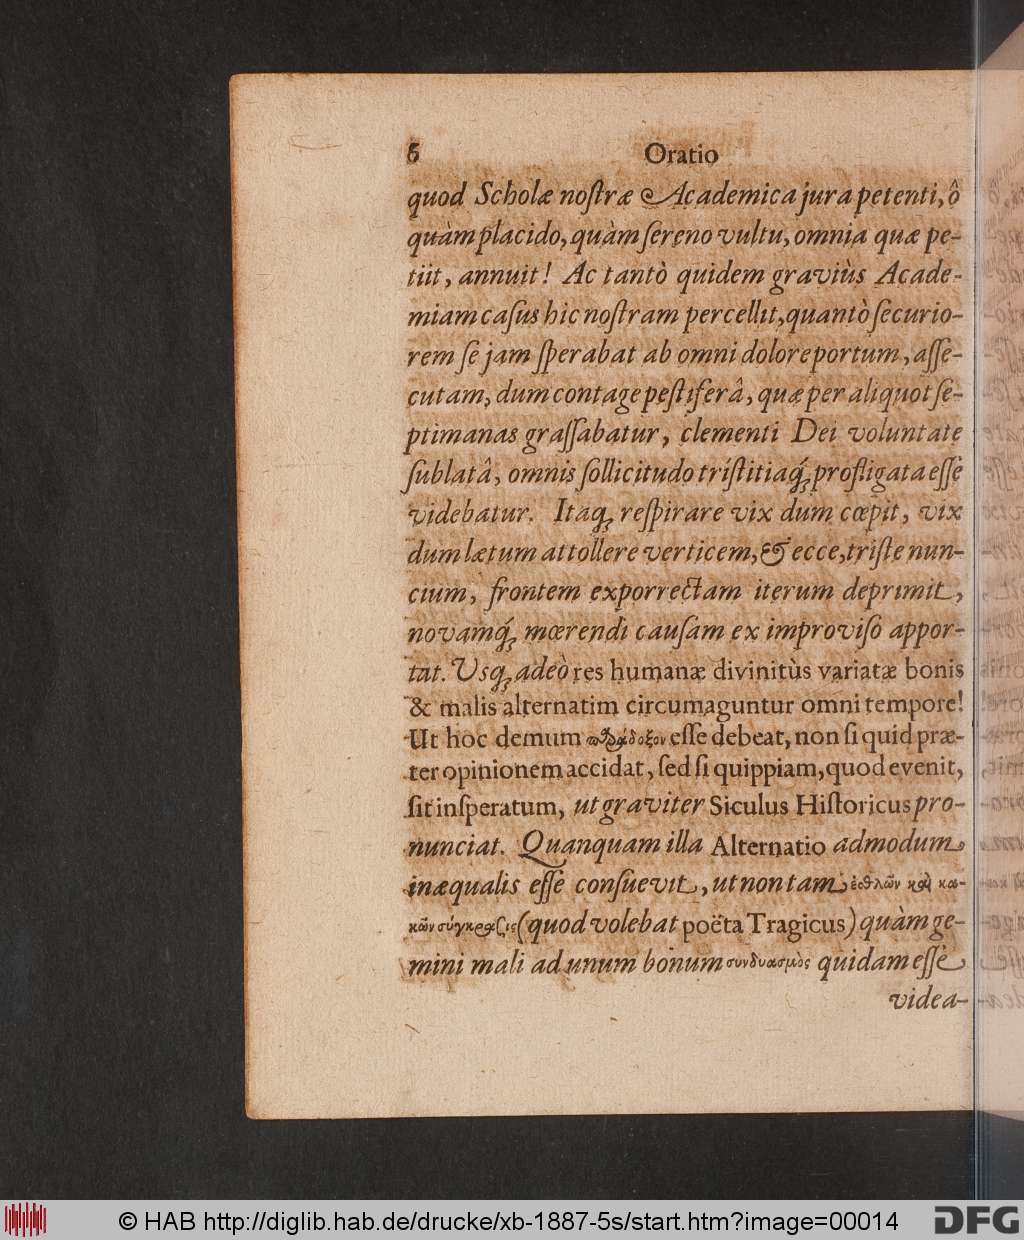 6 Oratio
quod Scholæ noſtræ Academica jura petenti, ô
quàm placido, quàm ſereno vultu, omnia quæ pe-
tiit, annuit! Ac tantò quidem graviùs Acade-
miam caſus hic noſtram percellit, quantò ſecurio-
rem ſe jam ſperabat ab omni dolore portum, aſſe-
cutam, dum contage peſtiferâ, quæ per aliquot ſe-
ptimanas graſſabatur, clementi Dei voluntate
ſublatâ, omnis ſollicitudo triſtitiaq́ꝫ profligata eſſe
videbatur. Itaqꝫ reſpirare vix dum cœpit, vix
dum lætum attollere verticem, & ecce, triſte nun-
cium, frontem exporrectam iterum deprimit,
novamq́ꝫ mœrendi cauſam ex improviſo appor-
tat. Usqꝫ adeò res humanæ divinitùs variatæ bonis
& malis alternatim circumaguntur omni tempore!
Ut hoc demum παράδοξον eſſe debeat, non ſi quid præ-
ter opinionem accidat, ſed ſi quippiam, quod evenit,
ſit inſperatum, ut graviter Siculus Hiſtoricus pro-
nunciat. Quanquam illa Alternatio admodum
inæqualis eſſe conſuevit, ut non tam ἐσθλῶν καὶ κα-
κῶν σύγκρασις (quod volebat poëta Tragicus) quàm ge-
mini mali ad unum bonum συνδυασμὸς quidam eſſe
videa-
© HAB http://diglib.hab.de/drucke/xb-1887-5s/start.htm?image=00014
DFG